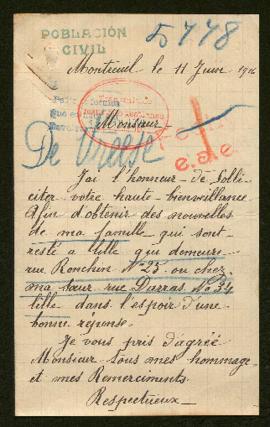 POBLACIÓN
CIVIL
5778
Montreuil le 11 Juin 191
Monsieur
De Vraese
e.a.e
J'ai l'honneur de Solli-
citer votre haute bienveillance
Afin d'obtenir des nouvelles
de ma famille qui sont
resté a Lille qui demeure
rue Ronchin No 25 ou chez
ma sœur rue Darras No 34
Lille dans l'espoir d'une
bonne réponse.
Je vous pris d'agréé
Monsieur tous mes hommage
et mes Remerciments.
Respectueux